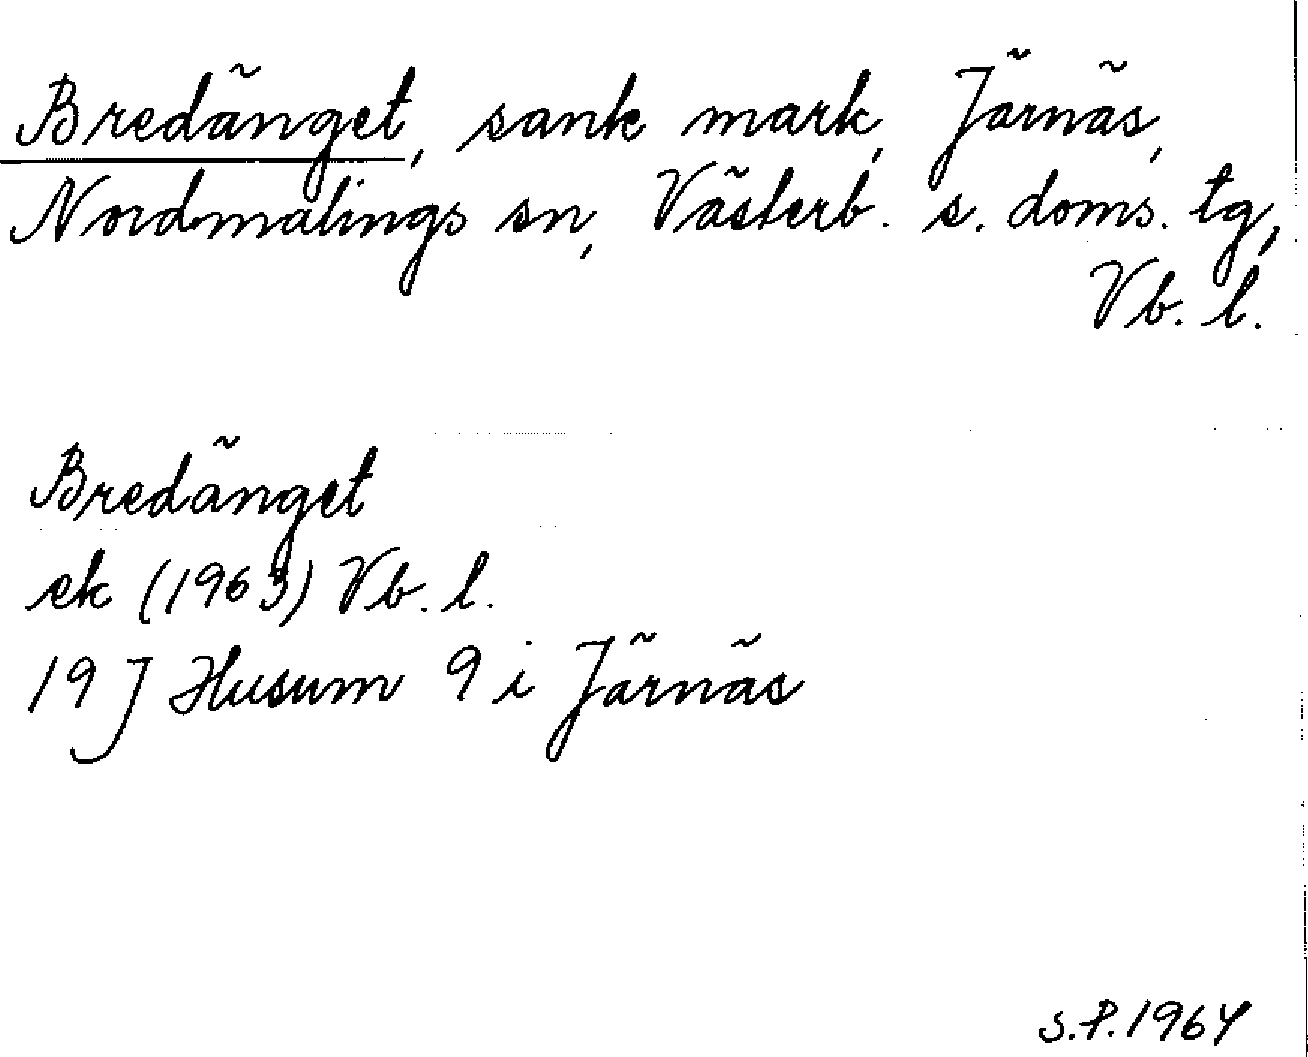 Bredänget, sank mark, Järnäs,
Nordmalings sn, Västerb. s. doms. tg,
Vb. l.
Bredänget
ek (1963) Vb. l.
19 J Husum 9 i Järnäs
S.P. 1964